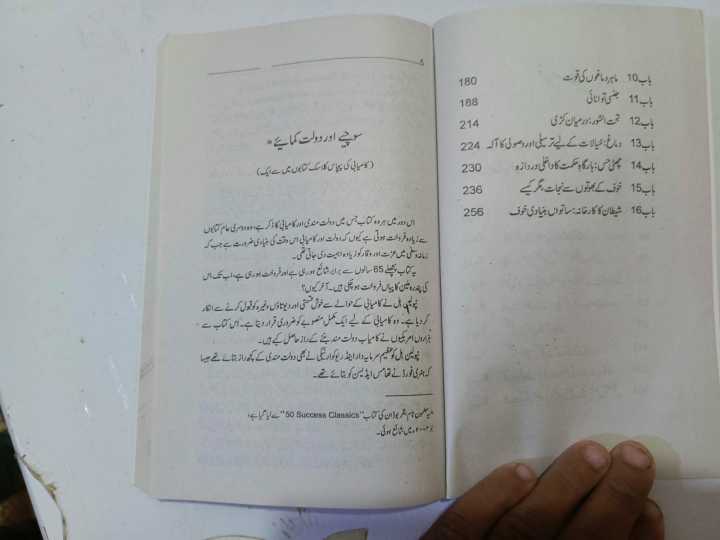 باب10 ماہر دماغوں کی قوت 180
باب11 جنسی توانائی 188
باب12 تحت الشعور: درمیان کڑی 214
باب13 دماغ: خیالات کے لیے ترسیلی اور وصولی کا آلہ 224
باب14 چھٹی حس: بارگاہِ حکمت کا داخلی دروازہ 230
باب15 خوف کے بھوتوں سے نجات، مگر کیسے 236
باب16 شیطان کا کارخانہ: ساتواں بنیادی خوف 256
۸
سوچیے اور دولت کمایئے *
(کامیابی کی پچاس کلاسک کتابوں میں سے ایک)
اس دور میں ہر وہ کتاب جس میں دولت مندی اور کامیابی کا ذکر ہے، وہ دوسری عام کتابوں
سے زیادہ فروخت ہوتی ہے کیوں کہ دولت اور کامیابی اس وقت کی بنیادی ضرورت ہے جب کہ
زمانہ وسطیٰ میں عزت اور وقار کو زیادہ اہمیت دی جاتی تھی۔
یہ کتاب پچھلے 65 سالوں سے برابر شائع ہو رہی ہے اور فروخت ہو رہی ہے، اب تک اس
کی پندرہ ملین کاپیاں فروخت ہو چکی ہیں۔ آخر کیوں؟
نپولین ہل نے کامیابی کے حوالے سے خوش قسمتی اور دیوتاؤں وغیرہ کو قبول کرنے سے انکار
کر دیا ہے۔ وہ کامیابی کے لیے ایک مکمل منصوبے کو ضروری قرار دیتا ہے۔ اس کتاب سے
ہزاروں امریکیوں نے کامیاب دولت مند بننے کے راز حاصل کیے ہیں۔
نپولین ہل کو عظیم سرمایہ دار اینڈریو کارنیگی نے بھی دولت مندی کے کچھ راز بتائے تھے جیسا
کہ ہنری فورڈ نے تھامس ایڈیسن کو بتائے تھے۔
* یہ مضمون ٹام بٹلر بوڈان کی کتاب "50 Success Classics" سے لیا گیا ہے،
جو ۲۰۰۴ء میں شائع ہوئی۔